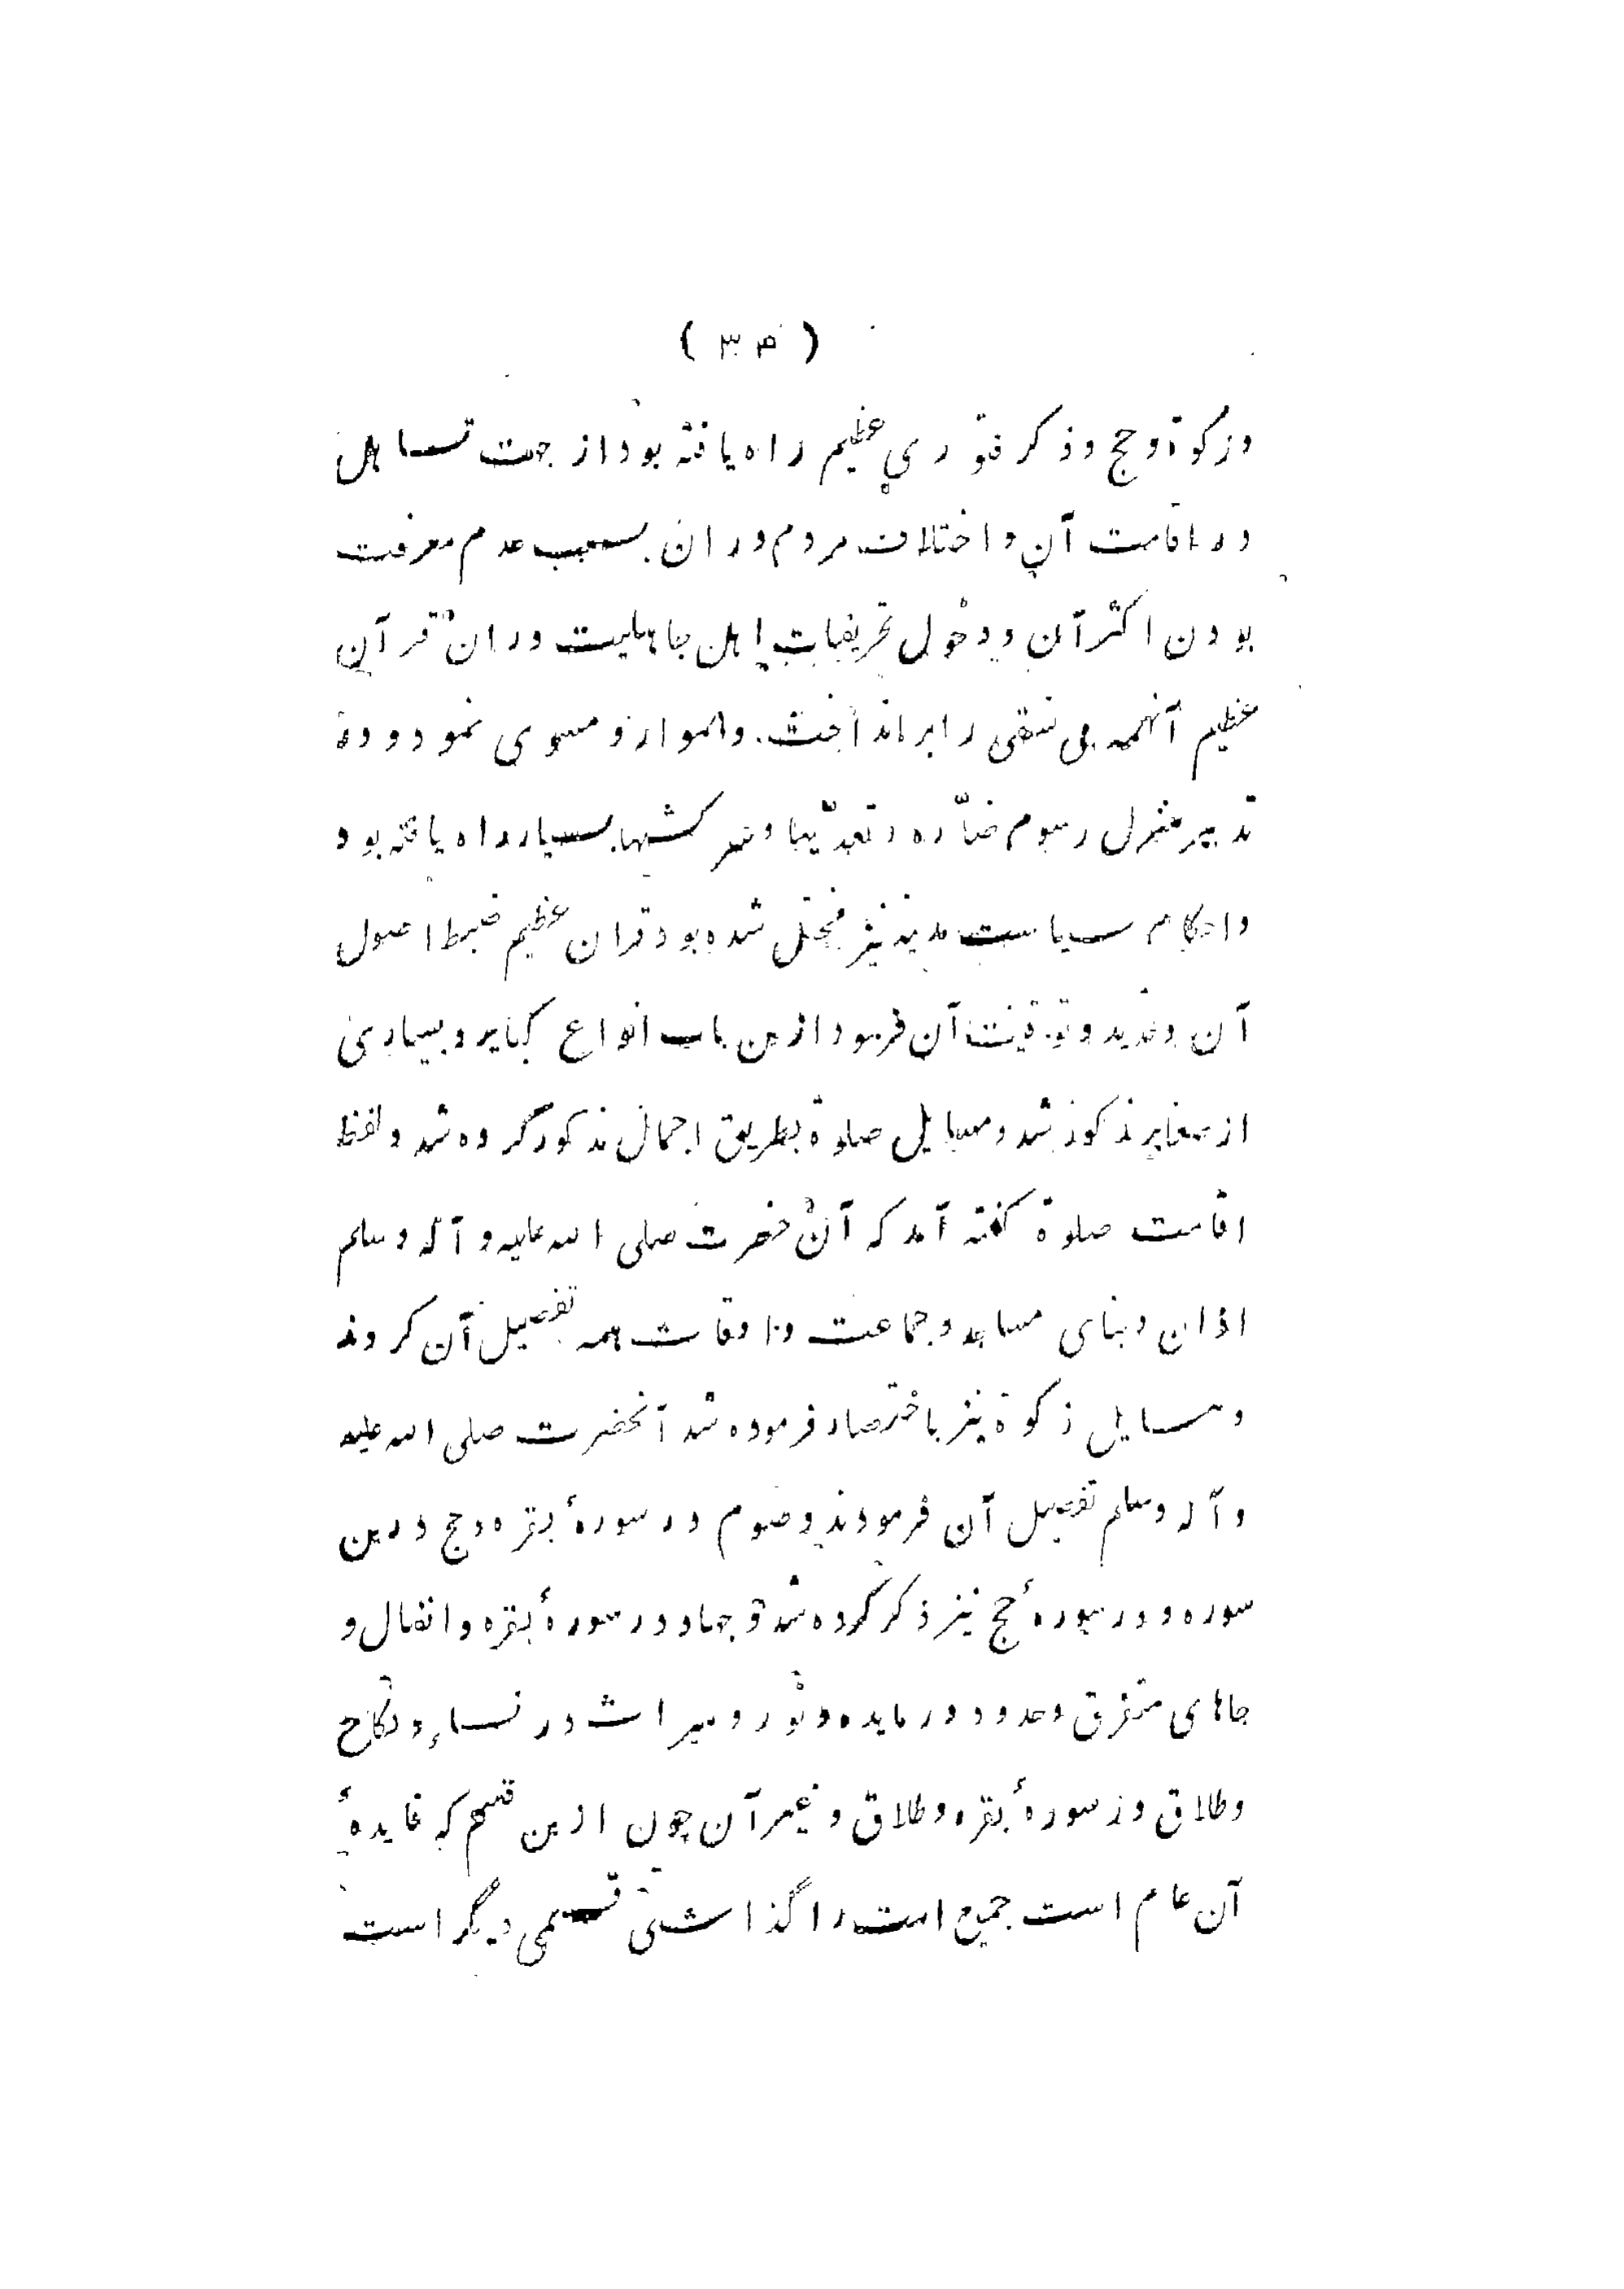 ( ۳۴ )
وزکوة وحج وذکر فتوری عظیم راه یافته بود از جهت تساهل
در اقامت آن و اختلاف مردم دران بسبب عدم معرفت
بودن اکثر آن و دخول تحریفات اهل جاهلیت دران قرآن
عظیم آنهمه بی نسقی را برانداخت و هموار و مسوی نمود و در
تدبیر منزل رسوم ضارّه و تعدّیها و سرکشیها بسیار راه یافته بود
واحکام سیاست مدینه نیز مختل شده بود قران عظیم ضبط اصول
آن و تحدید و توقیت آن فرمود ازین باب انواع کبایر و بسیاری
از صغایر مذکور شد و مسایل صلوة بطریق اجمال مذکور کرده شد و لفظ
اقامت صلوة گفته آمد که آن حضرت صلی الله علیه و آله وسلم
اذان و بنای مساجد و جماعت و اوقات همه تفصیل آن کردند
و مسایل زکوة نیز باختصار فرموده شد آنحضرت صلی الله علیه
و آله وسلم تفصیل آن فرمودند و صوم در سورۀ بقره و حج درین
سوره و در سورۀ حج نیز ذکر کرده شد و جهاد در سورۀ بقره و انفال و
جاهای متفرق و حدود در مایده و نور و میراث در نساء و نکاح
وطلاق در سورۀ بقره و طلاق و غیر آن چون ازین قسم که فایدۀ
آن عام است جمیع امت را گذاشتی قسمی دیگر است